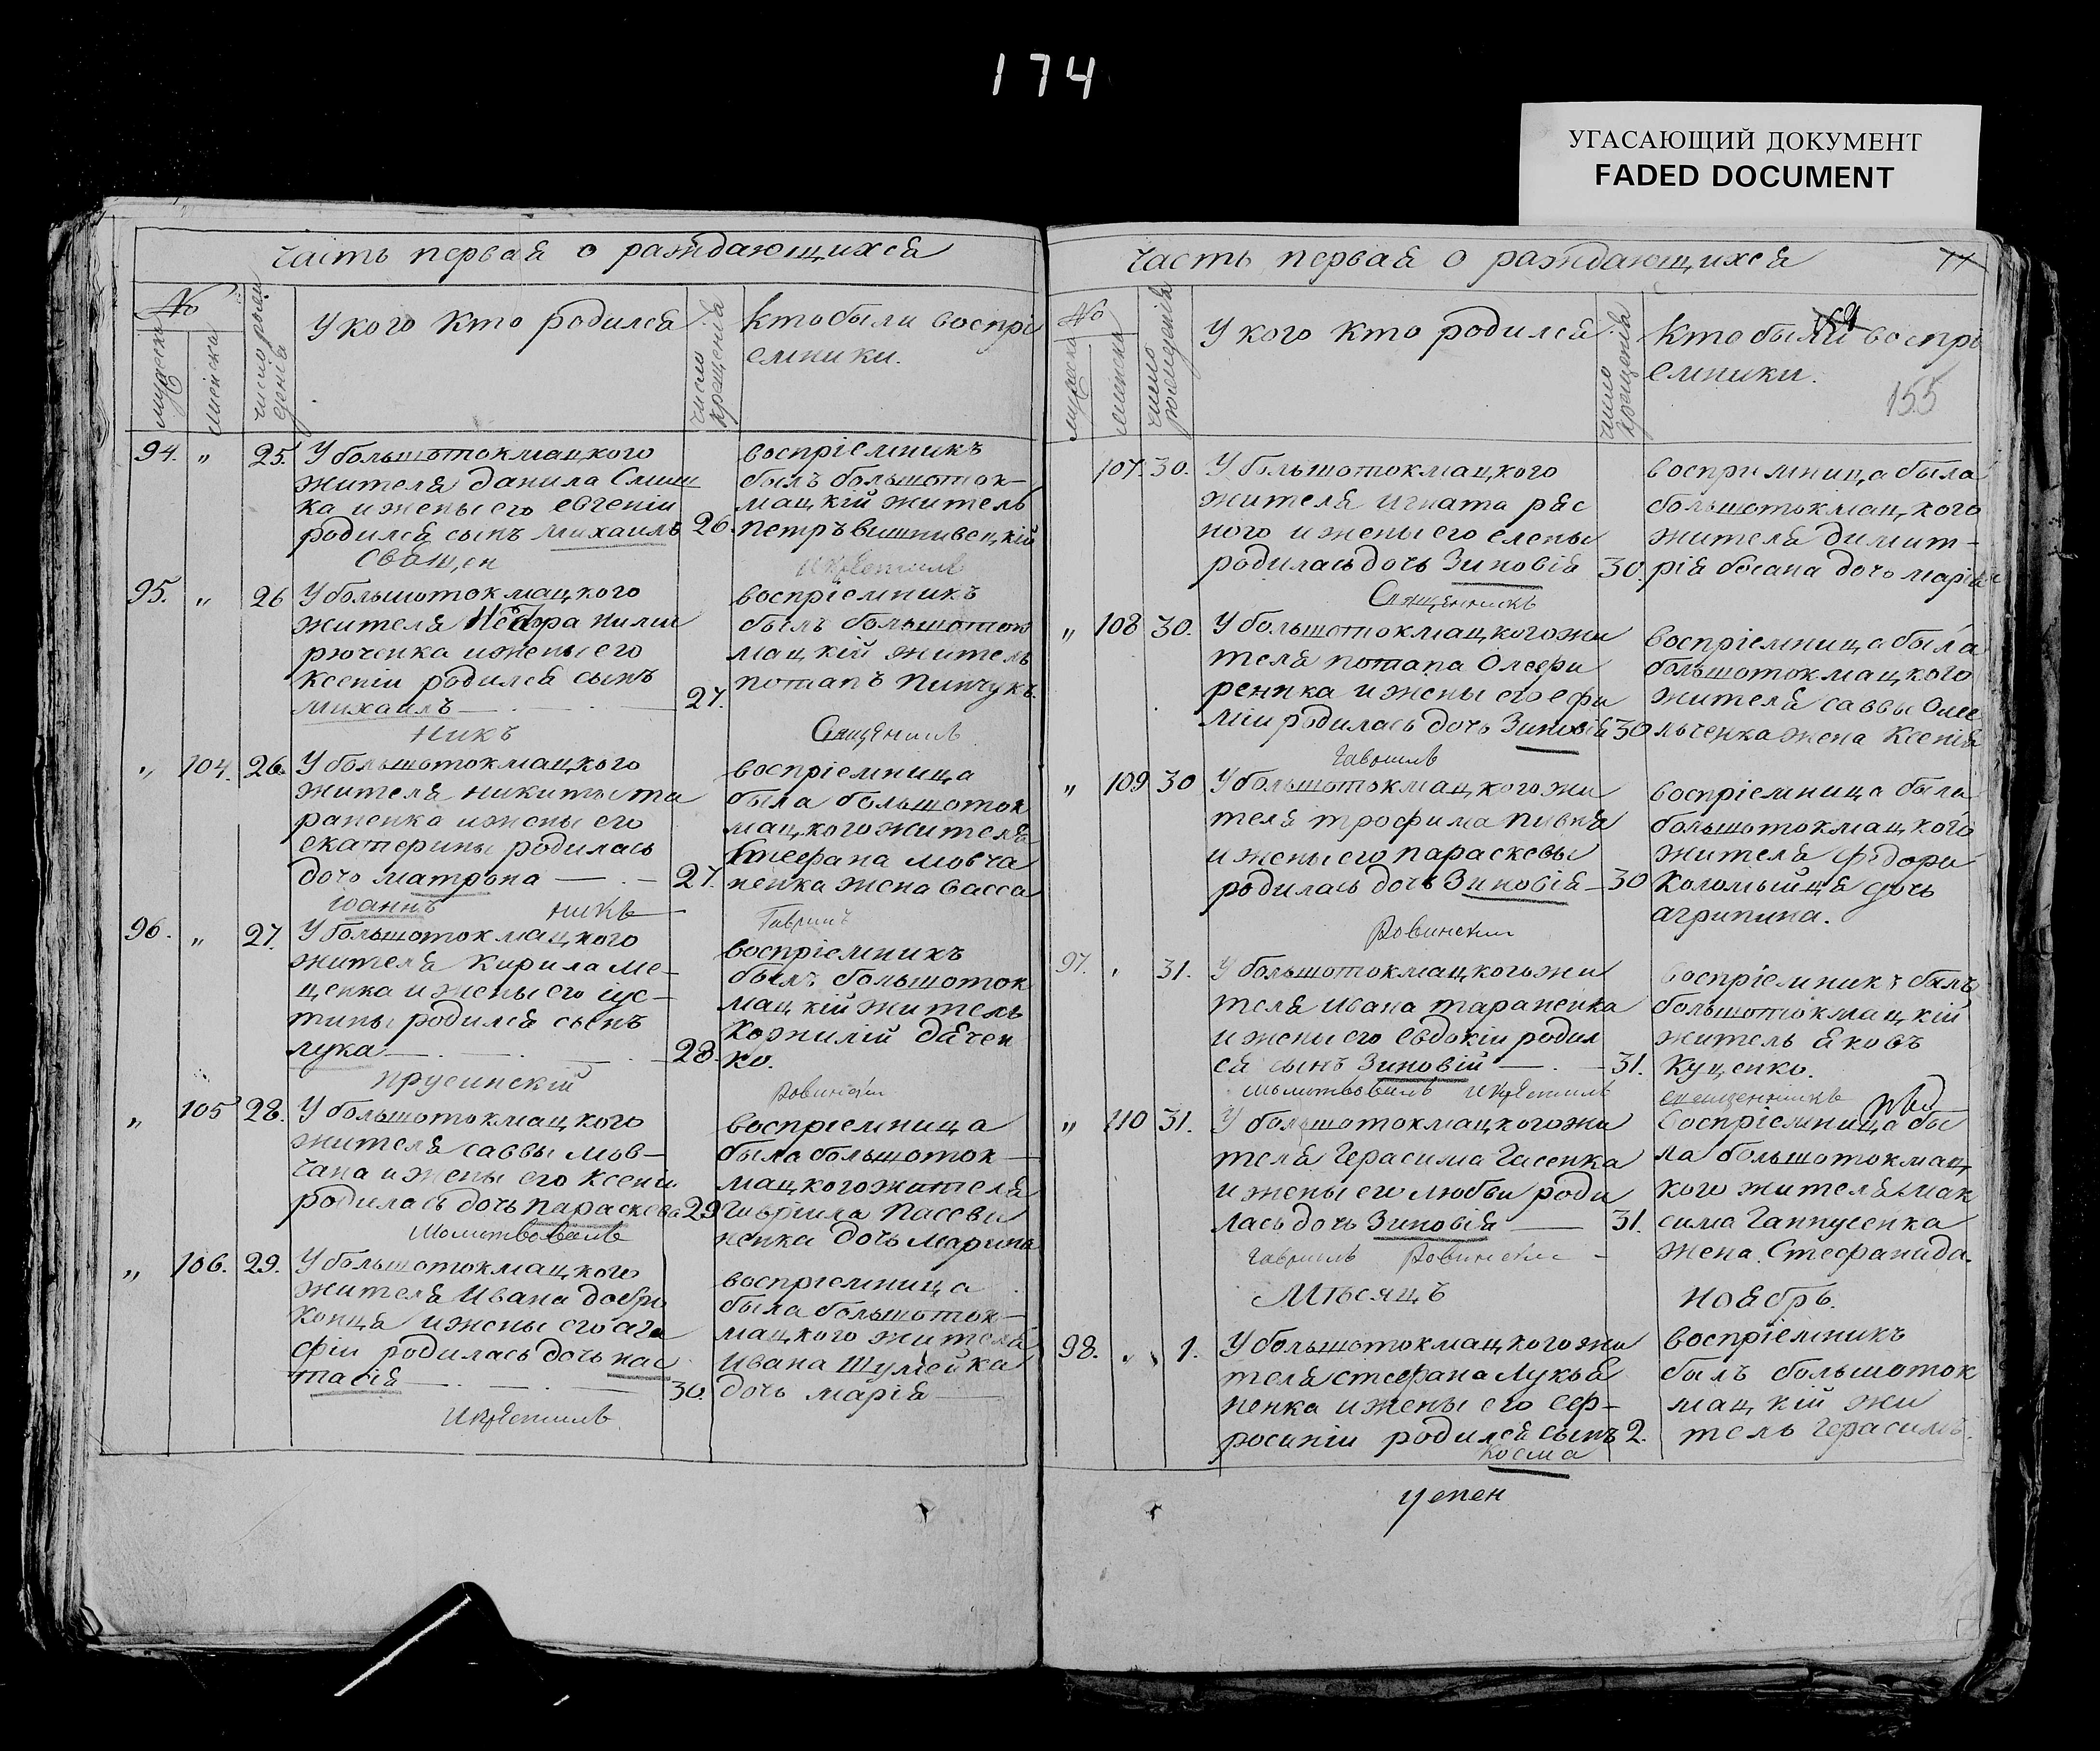 174
УГАСАЮЩИЙ ДОКУМЕНТ
FADED DOCUMENT
часть первая о раждающихся
№
мужеска
женска
число рожденія
У кого кто родился
число крещенія
Кто были воспрі
емники.
94. „ 25. У большотокмацкого
жителя данила
ка и жены его евгеніи
родился сынъ михаилъ 26.
воспріемникъ
былъ большоток-
мацкій житель
Петръ вишнивецкій
Священ
и крестилъ
95. „ 26 У большотокмацкого
жителя
рюченка и жены его
Ксеніи родился сынъ
михаилъ 27.
воспріемникъ
былъ большоток
мацкій житель
потапъ Пинчукъ
никъ
Священникъ
„ 104. 26. У большотокмацкого
жителя никиты та
раненка и жены его
екатерины родилась
дочь матрона 27.
воспріемница
была большоток
мацкого жителя
Стефана мовча
ненка жена васса
іоаннъ никъ
Гавріилъ
96. „ 27. У большотокмацкого
жителя Кирила Ме-
ценка и жены его іус-
тины родился сынъ
лука 28.
воспріемникъ
былъ большоток
мацкій житель
Корнилій дячен
ко.
прусинскій
Ровинскій
„ 105 28. У большотокмацкого
жителя саввы мов-
чана и жены его Ксеніи
родилась дочь параскева 29
воспріемница
была большоток-
мацкого жителя
Гавріила
ненка дочь Марина
Молитвовалъ
„ 106. 29. У большотокмацкого
жителя Ивана добро
конця и жены его ага
фіи родилась дочь нас
тасія 30.
воспріемница
была большоток-
мацкого жителя
Ивана Шулейка
дочь марія
и крестилъ
часть первая о раждающихся
77
№
мужеска
женска
число рожденія
У кого кто родился
число крещенія
Кто были воспрі
емники.
155
107. 30. У большотокмацкого
жителя игната ряс
ного и жены его елены
родилась дочь Зиновія 30.
восприемница была
большотокмацкого
жителя димит-
рія босана дочь марія
Священникъ
„ 108 30. У большотокмацкого жи
теля потапа Олефи
ренка и жены его ефи
міи родилась дочь Зиновія 30
воспріемница была
большотокмацкого
жителя саввы Оме
льченка жена Ксенія
Гавріилъ
„ 109 30 У большотокмацкого жи
теля трофима пивня
и жены его параскевы
родилась дочь Зиновія 30
воспріемница была
большотокмацкого
жителя фёдора
Коломыйця дочь
агрипина.
Ровинскій
97. „ 31. У большотокмацкого жи
теля Ивана тараненка
и жены его Евдокіи родил
ся сынъ Зиновій 31.
воспріемникъ былъ
большотокмацкій
житель Яковъ
Куценко.
молитвовалъ и крестилъ священникъ
„ 110 31. У большотокмацкого жи
теля Герасима Гасенка
и жены его любви роди
лась дочь Зиновія 31.
Воспріемница бы
ла большотокмац
кого жителя мак
сима Ганнусенка
жена Стефанида.
Гавріилъ Ровинскій
Мѣсяцъ Ноябрь.
98. „ 1. У большотокмацкого жи
теля стефана Лукья
ненка и жены его Еф-
росиніи родился сынъ 2.
Косма
воспріемникъ
былъ большоток
мацкій жи
тель Герасимъ.